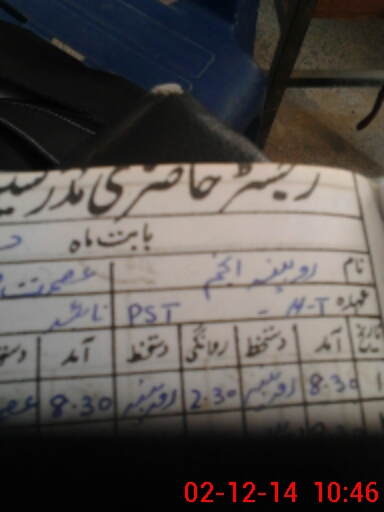 رجسٹر حاضری مدرسین
بابت ماہ
نام روبینہ انجم
عہدہ H-T - PST
تاریخ آمد دستخط روانگی دستخط آمد
1 8.30 روبینہ 2.30 روبینہ 8.30
02-12-14 10:46